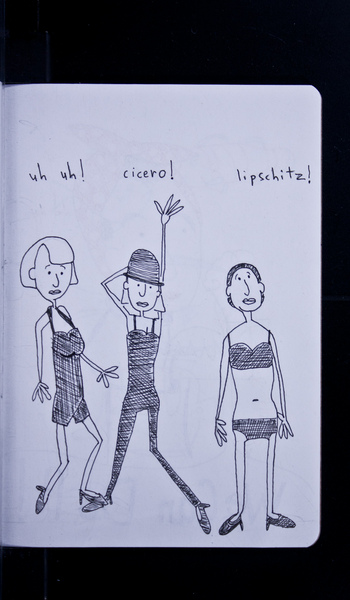 uh uh! cicero! lipschitz!